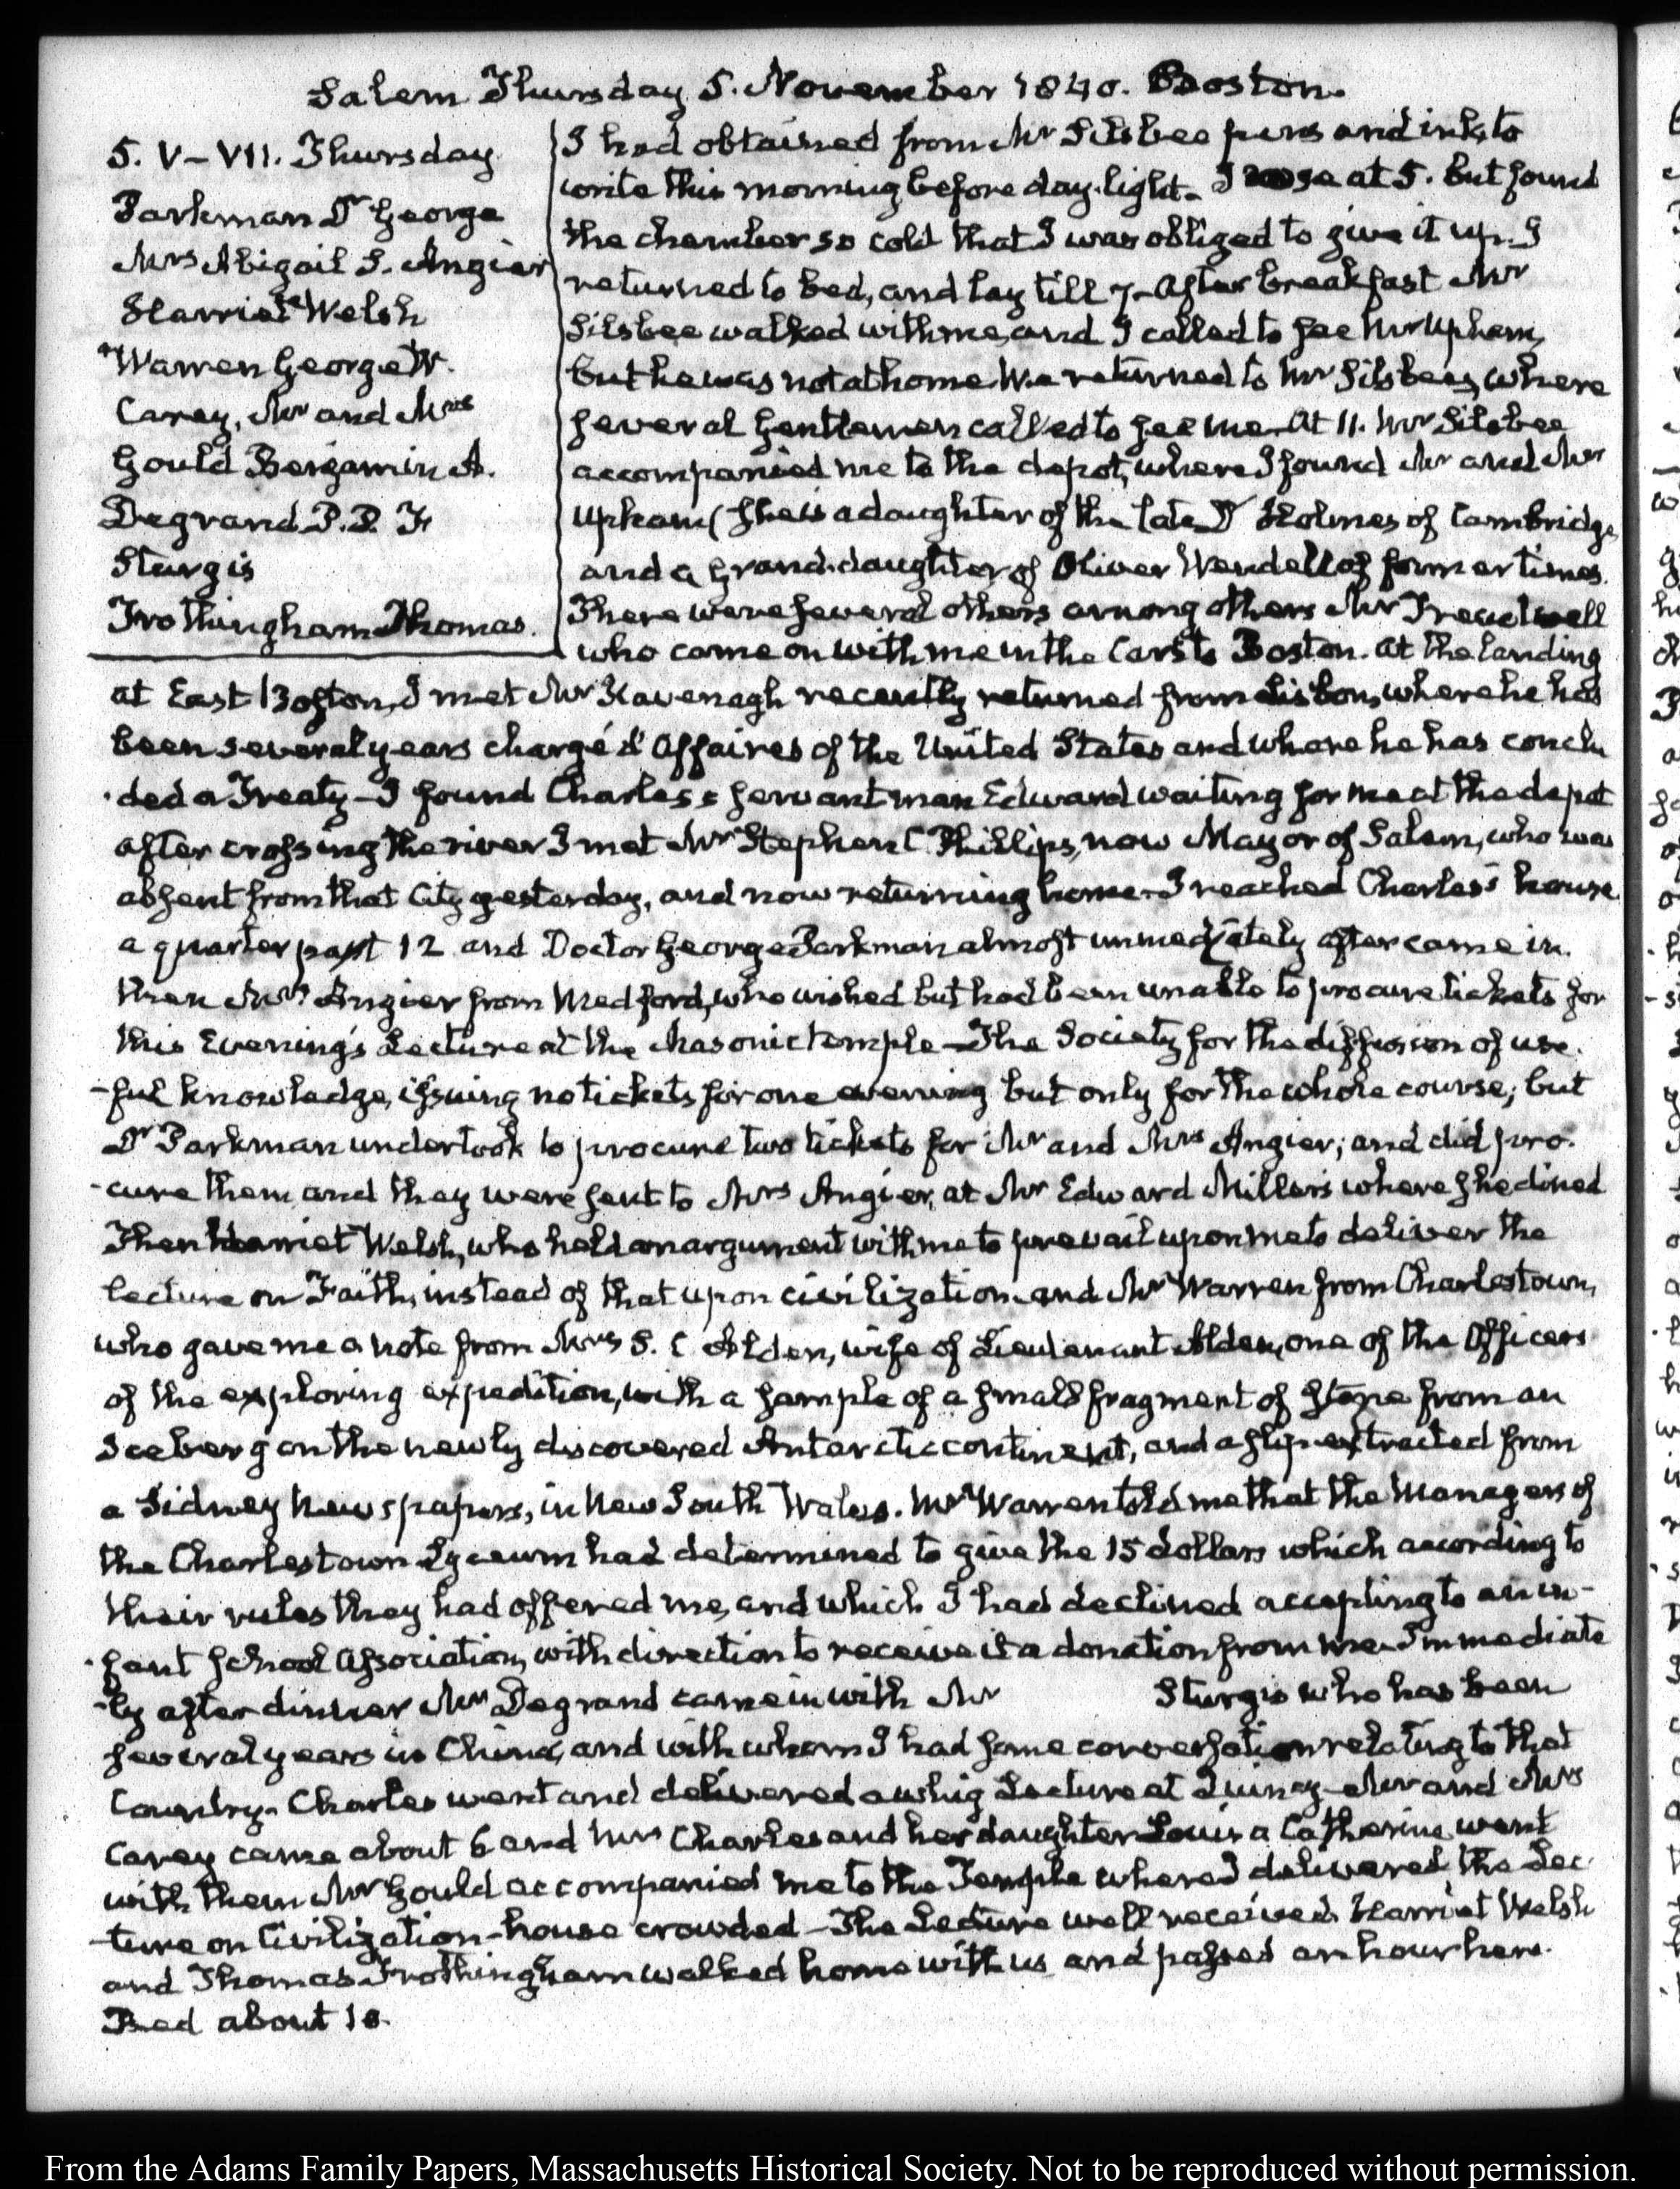 Salem Thursday 5. November 1840. Boston.
5. V–VII. Thursday
Parkman Dr George
Mrs Abigail S. Angier
Harriet Welsh
Warren George W.
Carey, Mr and Mrs
Gould Benjamin A.
Degrand P. P. F
Sturgis
Frothingham Thomas.
I had obtained from Mr Silsbee pens and ink, to
write this morning before day-light. I rose at 5. but found
the chamber so cold that I was obliged to give it up. I
returned to bed, and lay till 7 – After breakfast Mr
Silsbee walked with me, and I called to see Mr Upham,
but he was not at home. We returned to Mr Silsbee's, where
several Gentlemen called to see me. At 11. Mr Silsbee
accompanied me to the depot, where I found Mr and Mrs
Upham (she is a daughter of the late Dr Holmes of Cambridge
and a Grand-daughter of Oliver Wendell of former times.
There were several others among others Mr Treadwell
who came on with me in the Cars to Boston. At the landing
at East Boston, I met Mr Kavenagh recently returned from Lisbon, where he has
been several years chargé d'Affaires of the United States and where he has conclu
-ded a Treaty – I found Charles's servant man Edward waiting for me at the depot
after crossing the river I met Mr Stephen C Phillips, now Mayor of Salem, who was
absent from that City yesterday, and now returning home. I reached Charles's house
a quarter past 12 and Doctor George Parkman almost immediately after came in.
then Mrs Angier from Medford, who wished but had been unable to procure tickets for
this Evening's Lecture at the Masonic temple – The Society for the diffusion of use-
-ful knowledge, issuing no tickets for one evening but only for the whole course; but
Dr Parkman undertook to procure two tickets for Mr and Mrs Angier; and did pro-
-cure them and they were sent to Mrs Angier, at Mr Edward Miller's where she dined
Then Harriet Welsh, who held an argument with me to prevail upon me to deliver the
lecture on Faith, instead of that upon civilization and Mr Warren from Charlestown,
who gave me a note from Mrs S. C Alden, wife of Lieutenant Alden, one of the Officers
of the exploring expedition, with a sample of a small fragment of stone from an
Iceberg on the newly discovered Antarctic continent, and a slip extracted from
a Sidney Newspapers, in New South Wales. Mr Warren told me that the Managers of
the Charlestown Lyceum had determined to give the 15 dollars which according to
their rules they had offered me, and which I had declined accepting to an in-
-fant school Association, with direction to receive it a donation from me. Immediate
-ly after dinner Mr Degrand came in with Mr Sturgis who has been
several years in China, and with whom I had some conversation relating to that
Country. Charles went and delivered a whig Lecture at Quincy – Mr and Mrs
Carey came about 6 and Mrs Charles and her daughter Louisa Catherine went
with them Mr Gould accompanied me to the Temple where I delivered the Lec
-ture on Civilization – house crowded – The Lecture well received. Harriet Welsh
and Thomas Frothingham walked home with us and passed an hour here.
Bed about 10.
From the Adams Family Papers, Massachusetts Historical Society. Not to be reproduced without permission.